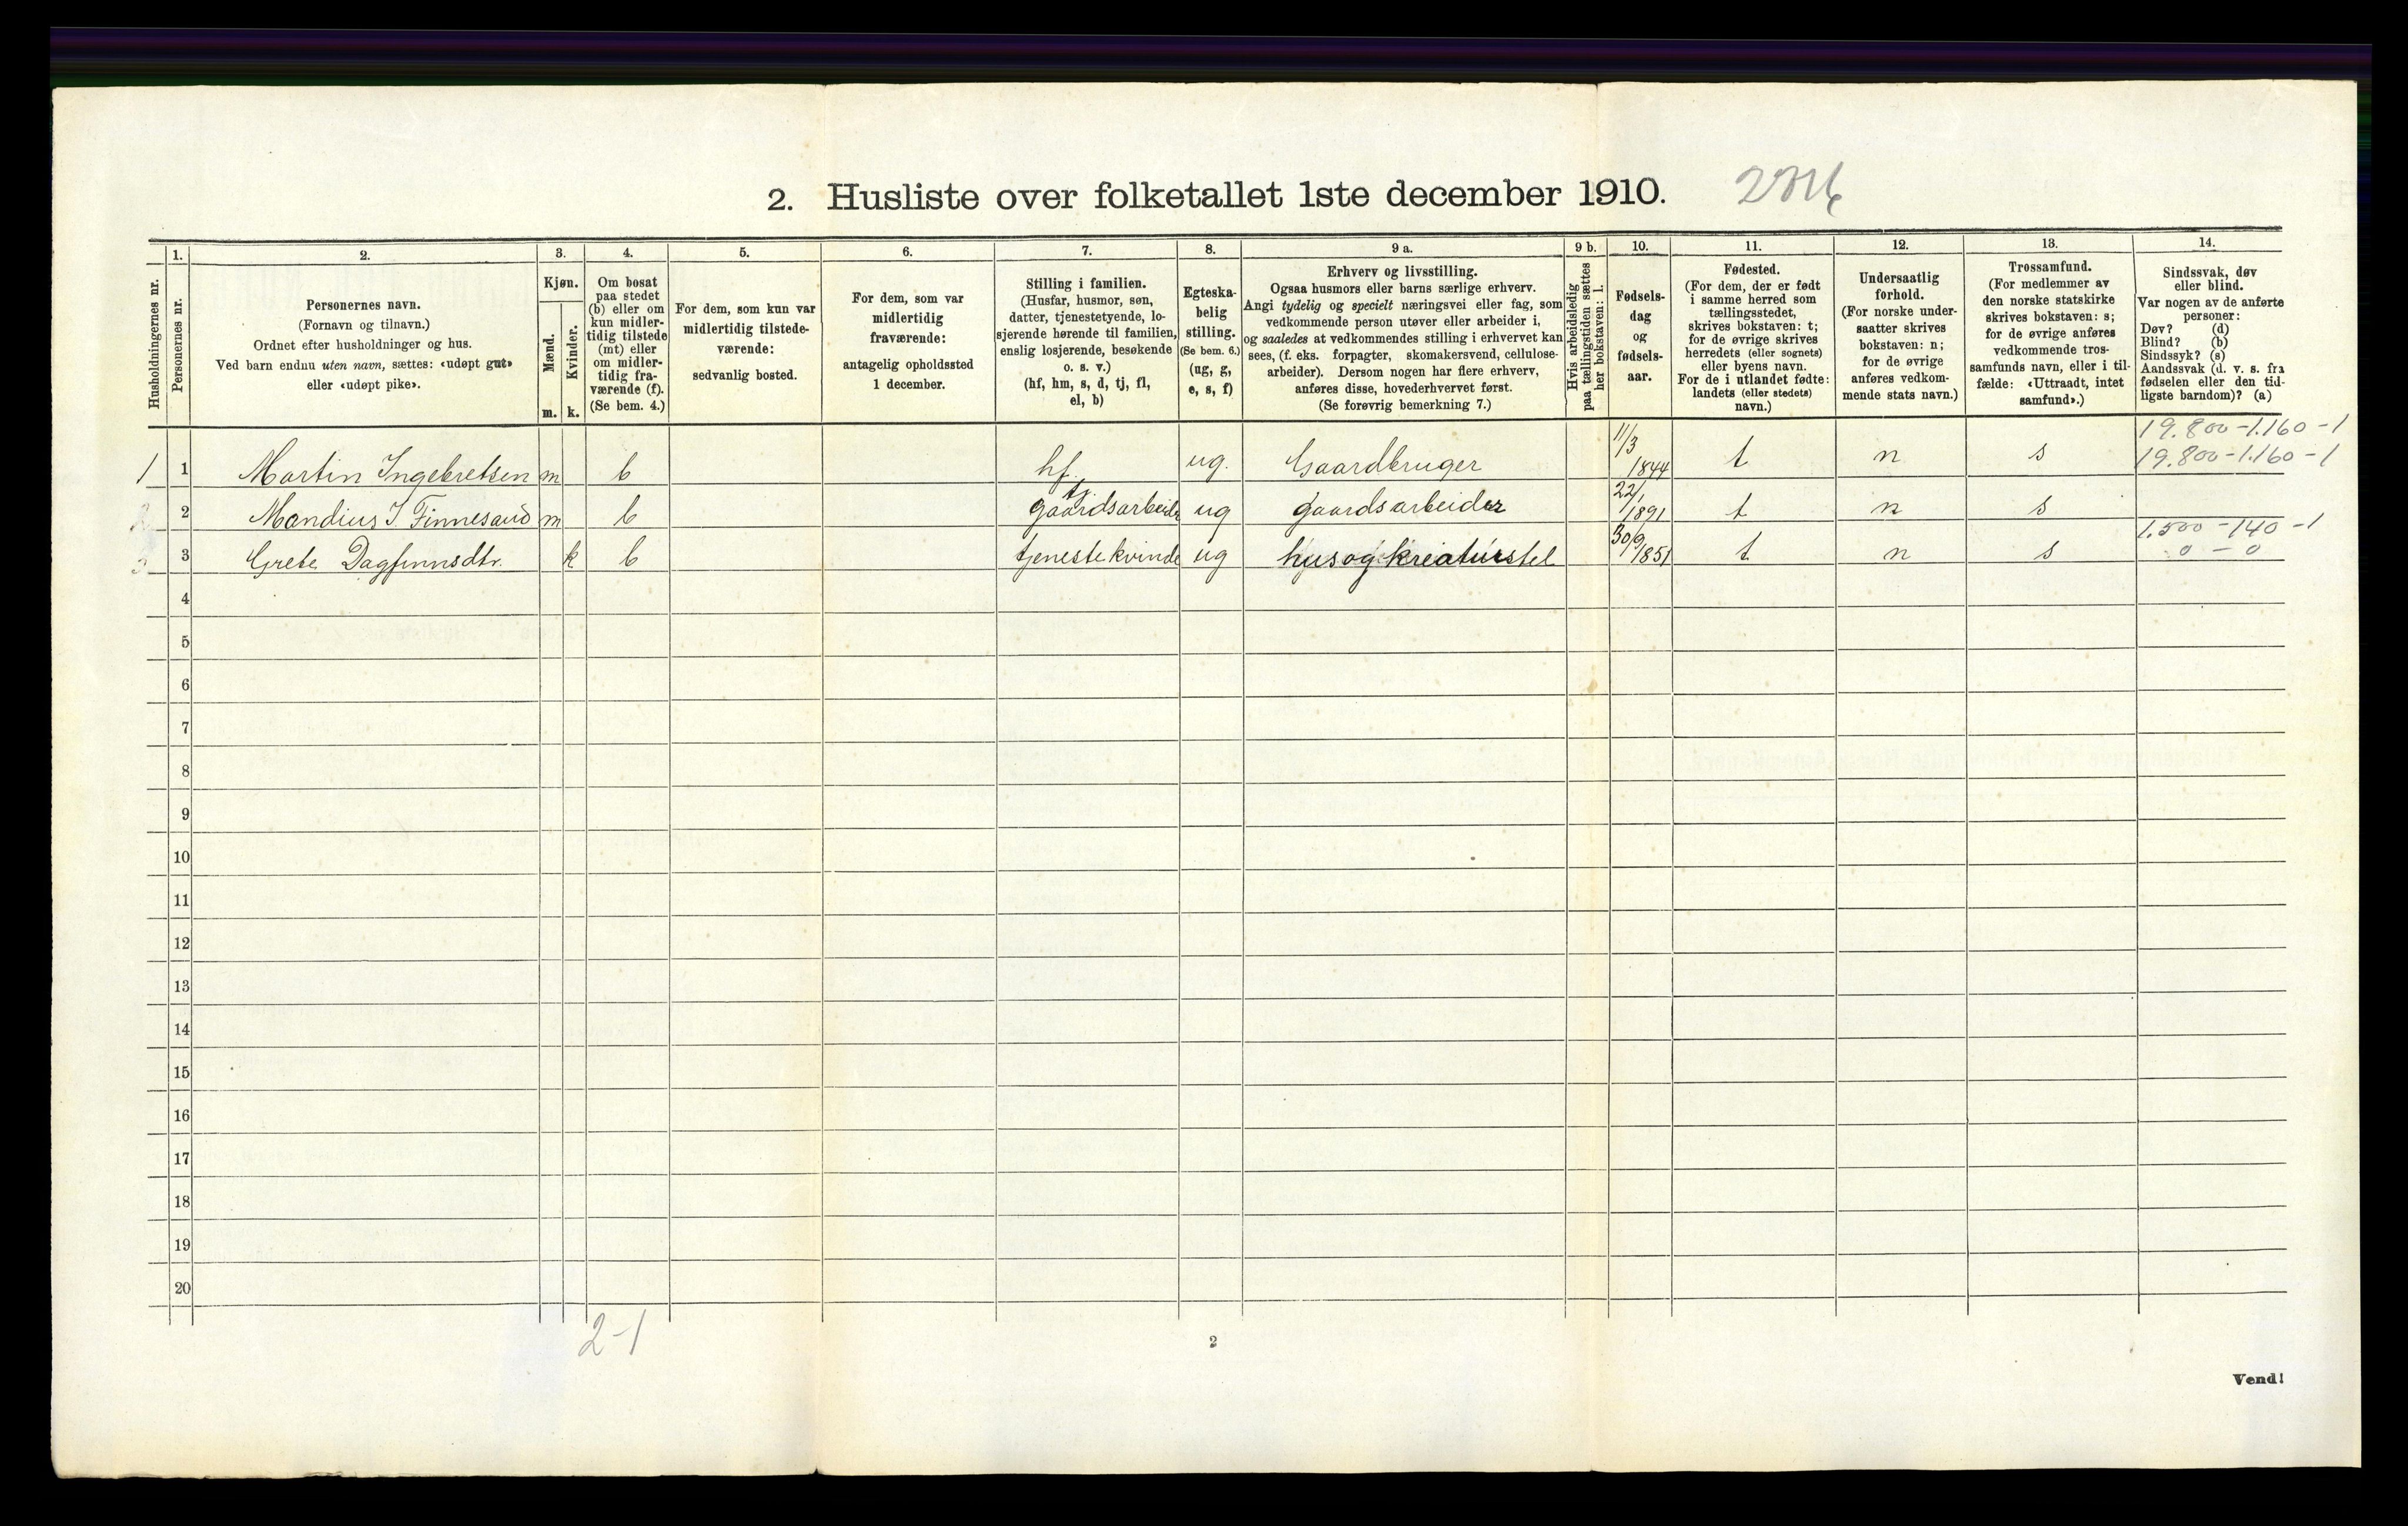 2. Husliste over folketallet 1ste december 1910.
1. 2. 3. 4. 5. 6. 7. 8. 9 a. 9 b. 10. 11. 12. 13. 14.
Husholdningernes nr.
Personernes nr.
Personernes navn.
(Fornavn og tilnavn.)
Ordnet efter husholdninger og hus.
Ved barn endnu uten navn, sættes: «udøpt gut»
eller «udøpt pike».
Kjøn.
Mænd.
Kvinder.
m. k.
Om bosat
paa stedet
(b) eller om
kun midler-
tidig tilstede
(mt) eller
om midler-
tidig fra-
værende (f).
(Se bem. 4.)
For dem, som kun var
midlertidig tilstede-
værende:
sedvanlig bosted.
For dem, som var
midlertidig
fraværende:
antagelig opholdssted
1 december.
Stilling i familien.
(Husfar, husmor, søn,
datter, tjenestetyende, lo-
sjerende hørende til familien,
enslig losjerende, besøkende
o. s. v.)
(hf, hm, s, d, tj, fl,
el, b)
Egteska-
belig
stilling.
(Se bem. 6.)
(ug, g,
e, s, f)
Erhverv og livsstilling.
Ogsaa husmors eller barns særlige erhverv.
Angi tydelig og specielt næringsvei eller fag, som
vedkommende person utøver eller arbeider i,
og saaledes at vedkommendes stilling i erhvervet kan
sees, (f. eks. forpagter, skomakersvend, cellulose-
arbeider). Dersom nogen har flere erhverv,
anføres disse, hovederhvervet først.
(Se forøvrig bemerkning 7.)
Hvis arbeidsledig
paa tællingstiden sættes
her bokstaven: l.
Fødsels-
dag
og
fødsels-
aar.
Fødested.
(For dem, der er født
i samme herred som
tællingsstedet,
skrives bokstaven: t;
for de øvrige skrives
herredets (eller sognets)
eller byens navn.
For de i utlandet fødte:
landets (eller stedets)
navn.)
Undersaatlig
forhold.
(For norske under-
saatter skrives
bokstaven: n;
for de øvrige
anføres vedkom-
mende stats navn.)
Trossamfund.
(For medlemmer av
den norske statskirke
skrives bokstaven: s;
for de øvrige anføres
vedkommende tros-
samfunds navn, eller i til-
fælde: «Uttraadt, intet
samfund».)
Sindssvak, døv
eller blind.
Var nogen av de anførte
personer:
Døv? (d)
Blind? (b)
Sindssyk? (s)
Aandssvak (d. v. s. fra
fødselen eller den tid-
ligste barndom)? (a)
19.800-1.160-1
1 1 Martin Ingebretsen m b hf. ug. Gaardbruger 11/3 1844 t n s 19.800-1.160-1
tj.
2 Mandius J. Finnesand m b gaardsarbeider ug gaardsarbeider 22/1 1891 t n s
1.500-140-1
3 Grete Dagfinnsdtr. k b tjenestekvinde ug hus og kreaturstel 30/9 1851 t n s 0-0
4
5
6
7
8
9
10
11
12
13
14
15
16
17
18
19
20
2-1
2
Vend!